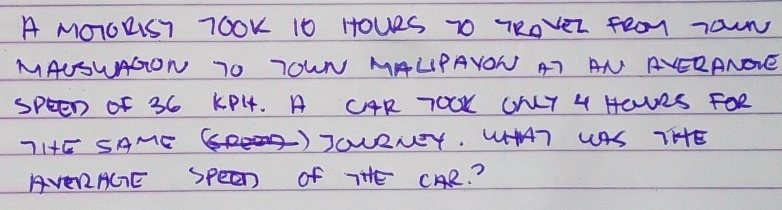 A MOTORIST TOOK 10 HOURS TO TRAVEL FROM TOWN
MAUSWAGON TO TOWN MALIPAYON AT AN AVERANGE
SPEED OF 36 KPH. A CAR TOOK ONLY 4 HOURS FOR
THE SAME (SPEED) JOURNEY. WHAT WAS THE
AVERAGE SPEED OF THE CAR?